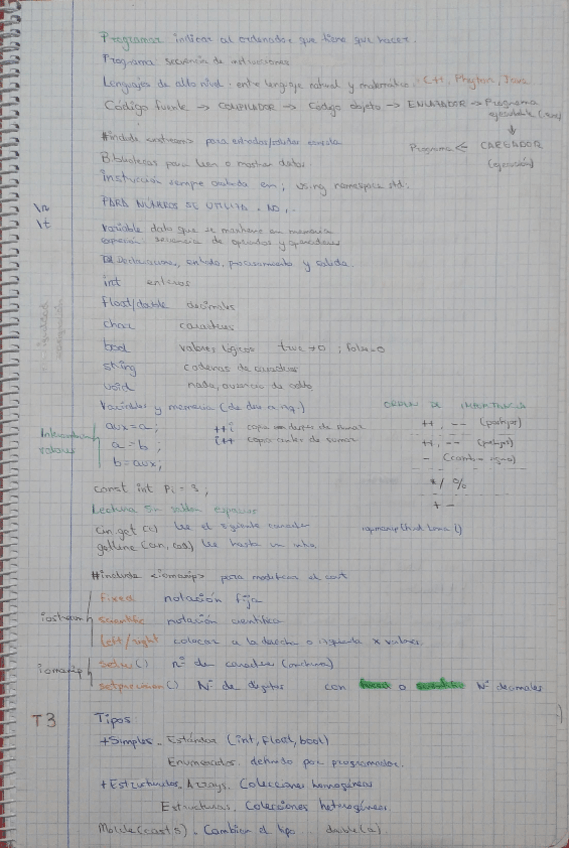 Programar indicar al ordenador que tiene que hacer.
Programa secuencia de instrucciones
Lenguajes de alto nivel. entre lenguaje natural y matemático. C++, Phyton, Java
Código fuente → COMPILADOR → Código objeto → ENLAZADOR → Programa ejecutable (.exe)
↓
Programa ← CARGADOR
(ejecución)
#include <iostream> para entradas/salidas consola
Bibliotecas para leer o mostrar datos
Instrucción siempre acabada en ; using namespace std;
PARA NÚMEROS SE UTILIZA . NO ,
\n
\t
Variable dato que se mantiene en memoria
expresión. secuencia de operandos y operadores
Declaraciones, entrada, procesamiento y salida.
int enteros
float/double decimales
char caracteres
bool valores lógicos true≠0 ; false=0
string cadenas de caracteres
void nada, ausencia de
Variables y memoria (de der a izq.)
ORDEN DE
Intercambiar valores
aux=a;
a=b;
b=aux;
++i copia despues de sumar
i++ copia antes de sumar
++, -- (postfijos)
++, -- (prefijos)
- (cambio signo)
*/ %
+ -
const int Pi = 3;
Lectura sin saltar espacios
cin.get (c) lee el siguiente caracter
getline (cin, cad) lee hasta un intro
#include <iomanip> para modificar el cout
iostream
fixed notación fija
scientific notación científica
left/right colocar a la derecha o izquierda x valores.
iomanip
setw() nº de caracteres (anchura)
setprecision() Nº de dígitos con fixed o scientific Nº decimales
T3 Tipos
+Simples. Estándar (int, float, bool)
Enumerados. definido por programador.
+Estructurados. Arrays. Colecciones homogéneas
Estructuras. Colecciones heterogéneas
Molde (casts). Cambian el tipo double(a).